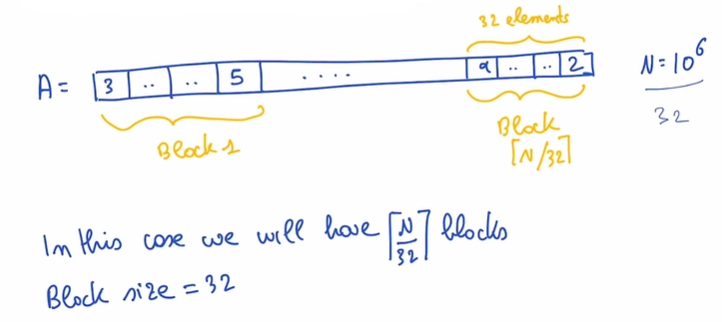 32 elements
A = 3 .. .. 5 .... 9 .. .. 2 N = 10^6
32
Block 1
Block
[N/32]
In this case we will have ⌈N/32⌉ blocks
Block size = 32